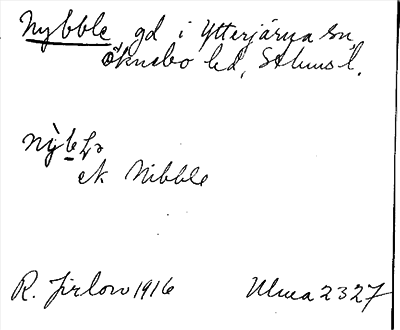 Nybble, gd i Ytterjärna sn,
Öknebo hd, Sthms l.
ek Nibble
R. Jirlow 1916 Ulma 2327